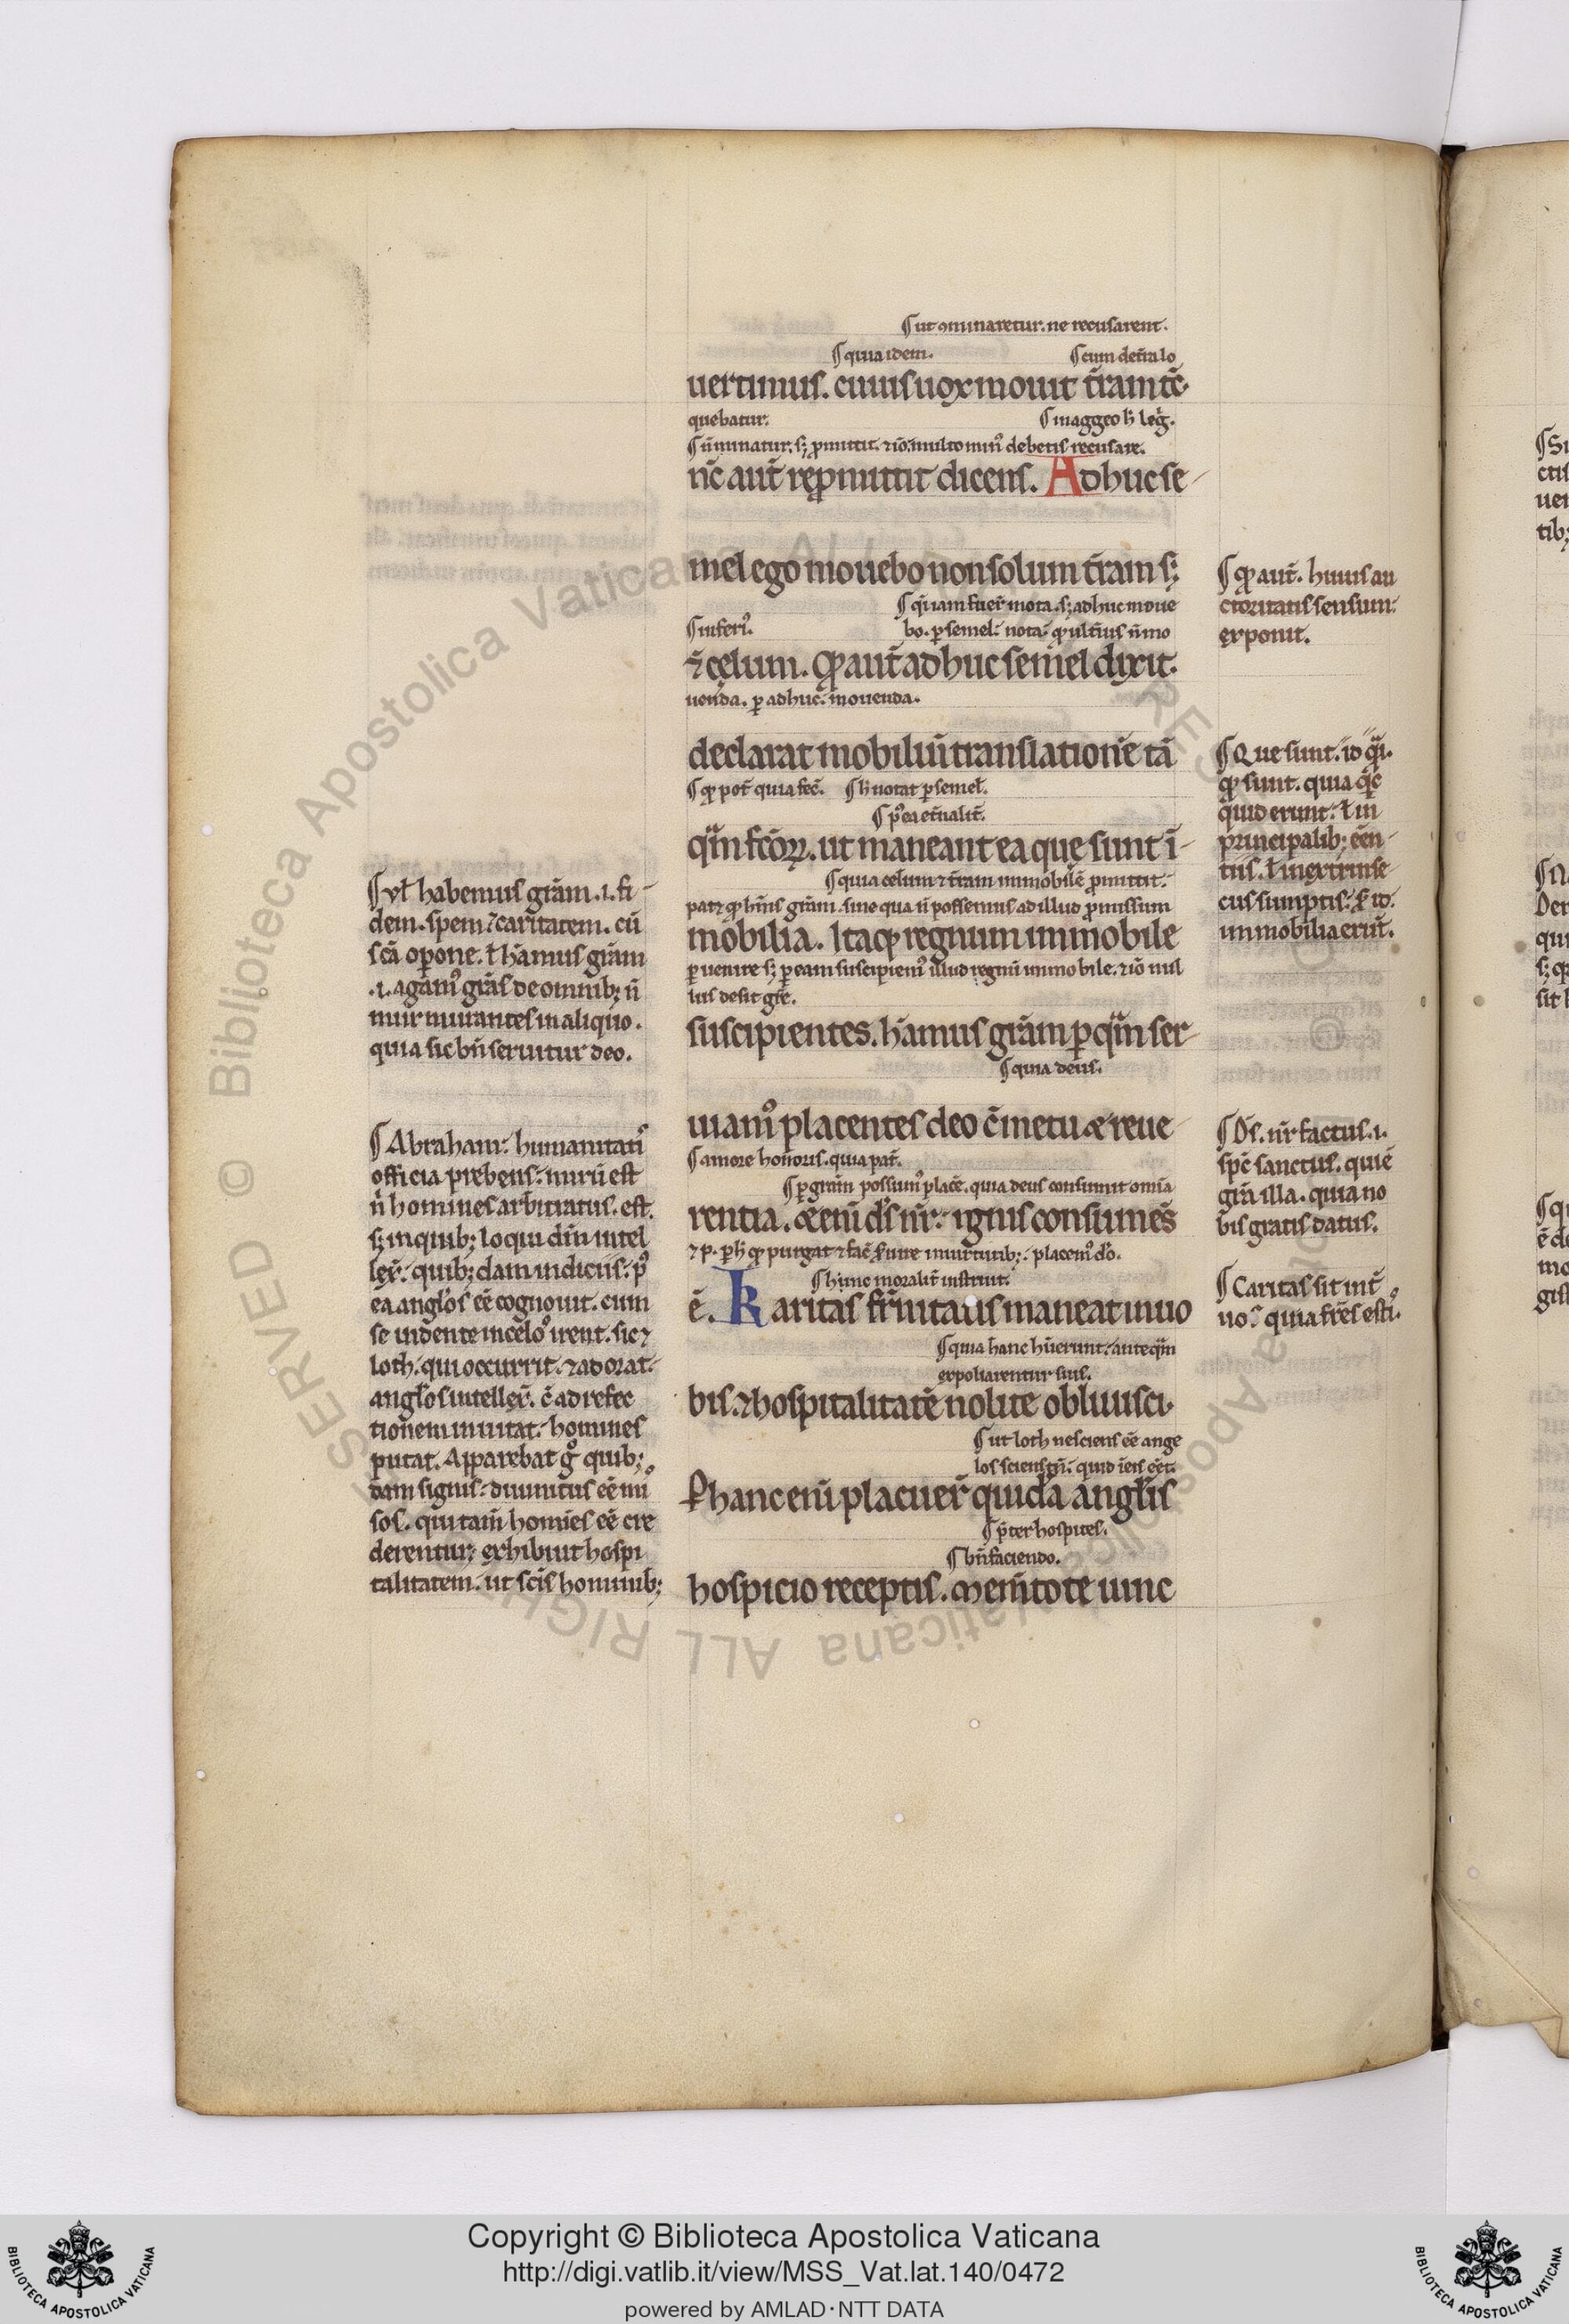 ¶ ut ɔminaretur. ne recusarent.
¶ quia idem. ¶ cum dc̄ralo
uertimus. cuius uox mouit t̄ram tc̄.
quebatur. ¶ in aggeo h̄ leg̃.
¶ n̄ minatur. s; ꝓmittit. ⁊ iō. multo minꝰ debetis recusare.
nc̄ aut̄ reꝓmittit dicens. Adhuc se
mel ego mouebo non solum t̄ram s;
¶ q̄ iam fuer̄ mota. s; adhuc moue
¶ inferiꝰ. bo. ꝑ semel. nota. ꝙ ult̄ius n̄ mo
⁊ cęlum. Ꝙ aut̄ adhuc semel dixit.
uenda. ꝑ adhuc. mouenda.
declarat mobiliū translationē tā
¶ ꝙ pot̄ quia fec̄. ¶ h̄ notat ꝑ semel.
¶ pꝰea et̄nalit̄.
qͣm fc̄oꝝ. ut maneant ea quę sunt ī
¶ quia celum ⁊ t̄ram immobilē ꝓmittit.
patꝫ ꝙ hēm̄s grām. sine qua n̄ possemus ad illud ꝓmissum
mobilia. Itaqꝫ regnum immobile
ꝑuenire s; ꝑ eam suscipiemꝰ illud regnū immobile. ⁊ iō nul
lus desit grē.
suscipientes. ham̄us grām ꝑ qͣm ser
¶ quia deus.
uiamꝰ placentes deo c̄ metu & reue
¶ amore honoris. quia pat̄.
¶ ꝑ gram̄ possumꝰ placē. quia deus consumit omīa
rentia. &enī ds̄ nr̄. ignis consumēs
⁊ p. ꝑ h̄ ꝙ purgat ⁊ fac̄ feruere in uirtutibꝫ. placemꝰ dō.
¶ hinc moralit̄ instruit.
ē. Karitas fr̄nitatis maneat in uo
¶ quia hanc hūerunt. anteqͣm
expoliarentur suis.
bis. ⁊ hospitalitatē nolite obliuisci.
¶ ut loth nesciens eē ange
los
Ꝑ hanc enī placuer̄ quidā angl̄is
¶ p̄ter hospites.
¶ bn̄faciendo.
hospicio receptis. Mem̄tote uinc
¶ Vl̄ habemus grām .i. fi
dem. spem ⁊ caritatem. cū
scā oꝑone. l̄ ham̄us grām
.i. agamꝰ grās de omnibꝫ n̄
murmurantes in aliquo.
quia sic bn̄ seruitur deo.
¶ Abraham. humanitatis
officia prebens. mirū est
n̄ homines arbitratus. est.
s; in quibꝫ loqui dn̄m intel
lex̄. quibꝫdam indiciis. pꝰ
ea angl̄os eē cognouit. cum
se uidente in cęlos irent. sic ⁊
loth. qui occurrit. ⁊ adorat.
angl̄os intellex̄. c̄ ad refec
tionem inuitat. homines
putat. Apparebat gͦ quibꝫ
dam signis. diuinitus eē mi
sos. qui tam̄ homīes eē cre
derentur. exhibuit hospi
talitatem. ut scīs hominibꝫ
¶ Ꝙ aut̄. huius au
ctoritatis sensum.
exponit.
¶ Que sunt. id qͣi.
ꝙ sunt. quia qͥc
quid erunt. l̄ in
principalibꝫ eēn
tiis. l̄ in extrinse
cus sumptis.
immobilia erūt.
¶ Ds̄. nr̄ factus .i.
spc̄ sanctus. qui ē
grā illa. quia no
bis gratis datus.
¶ Caritas sit int̄
uos. quia fr̄es estis.
Copyright © Biblioteca Apostolica Vaticana
http://digi.vatlib.it/view/MSS_Vat.lat.140/0472
powered by AMLAD·NTT DATA
BIBLIOTECA APOSTOLICA VATICANA
BIBLIOTECA APOSTOLICA VATICANA